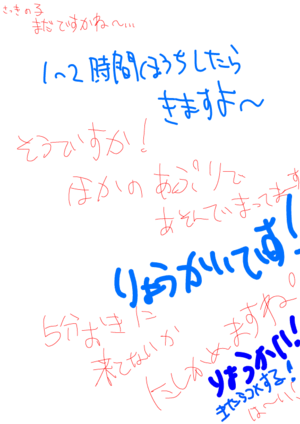 さっきの子
まだですかね〜...
1〜2時間ほうちしたら
きますよ〜
そうですか!
ほかのあぷりで
あそんでまってます
りょうかいです!
5分おきに
来てないか
たしかめますね。
りょうかい!
またろコメする!
は〜い!